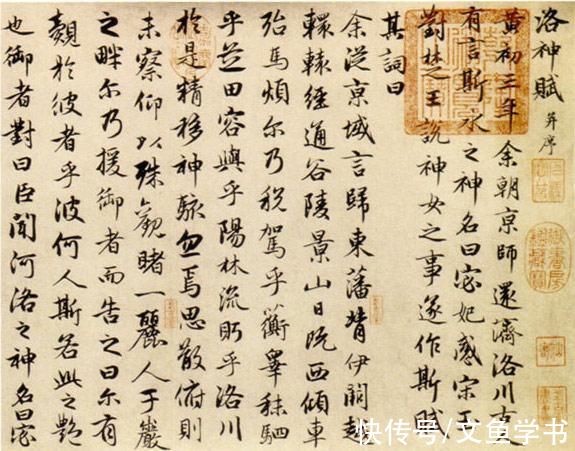 洛神賦 并序
黃初三年余朝京師還濟洛川古
有言斯水之神名曰宓妃感宋玉
對楚王說神女之事遂作斯賦
其詞曰
余從京域言歸東藩背伊闕越
轘轅經通谷陵景山日既西傾車
殆馬煩尔乃稅駕乎蘅皋秣駟
乎芝田容與乎陽林流眄乎洛川
於是精移神駭忽焉思散俯則
未察仰以殊觀睹一麗人于巖
之畔尔乃援御者而告之曰尔有
覿於彼者乎彼何人斯若此之豔
也御者對曰臣聞河洛之神名曰宓
快传号/文鱼学书